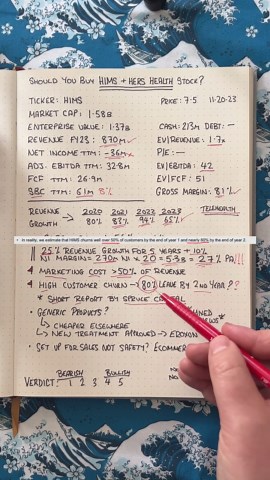 SHOULD YOU BUY HIMS + HERS HEALTH STOCK?
TICKER: HIMS
PRICE: 7.5 11-20-23
MARKET CAP: 1.58B
ENTERPRISE VALUE: 1.37B
CASH: 213M DEBT: —
REVENUE FY23: 870M
EV/REVENUE: 1.7x
NET INCOME TTM: -36M
P/E: —
ADJ. EBITDA TTM: 32.8M
EV/EBITDA: 42
FCF TTM: 26.9M
EV/FCF: 51
SBC TTM: 61M 8%
GROSS MARGIN: 81%
REVENUE 2020 2021 2022 2023
GROWTH 80% 83% 94% 65%
TELEHEALTH
In reality, we estimate that HIMS churns well over 50% of customers by the end of year 1 and nearly 80% by the end of year 2
25% REVENUE GROWTH FOR 5 YEARS + 10%
NI MARGIN = 270M NI x 20 = 5.3B = 27% PA!!!
MARKETING COST >50% OF REVENUE
HIGH CUSTOMER CHURN → 80% LEAVE BY 2ND YEAR??
* SHORT REPORT BY SPRUCE
GENERIC PRODUCTS?
↳ CHEAPER ELSEWHERE
↳ NEW TREATMENT APPROVED →
SET UP FOR SALES NOT SAFETY? ECOMMER
BEARISH BULLISH
VERDICT: 1 2 3 4 5